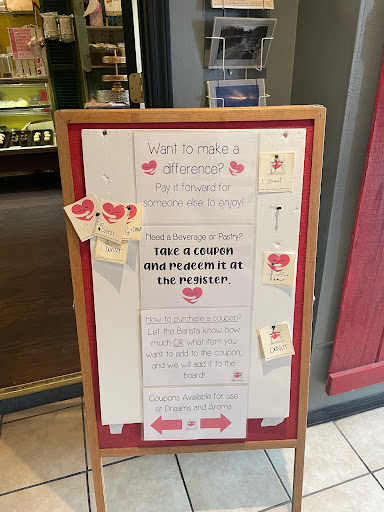 Want to make a
difference?
Pay it forward for
someone else to enjoy!
Need a Beverage or Pastry?
Take a coupon
and redeem it at
the register.
How to purchase a coupon?
Let the Barista know how
much OR what item you
want to add to the coupon,
and we will add it to the
board!
Coupons Available for use
at Dreams and Aroma
DONUT